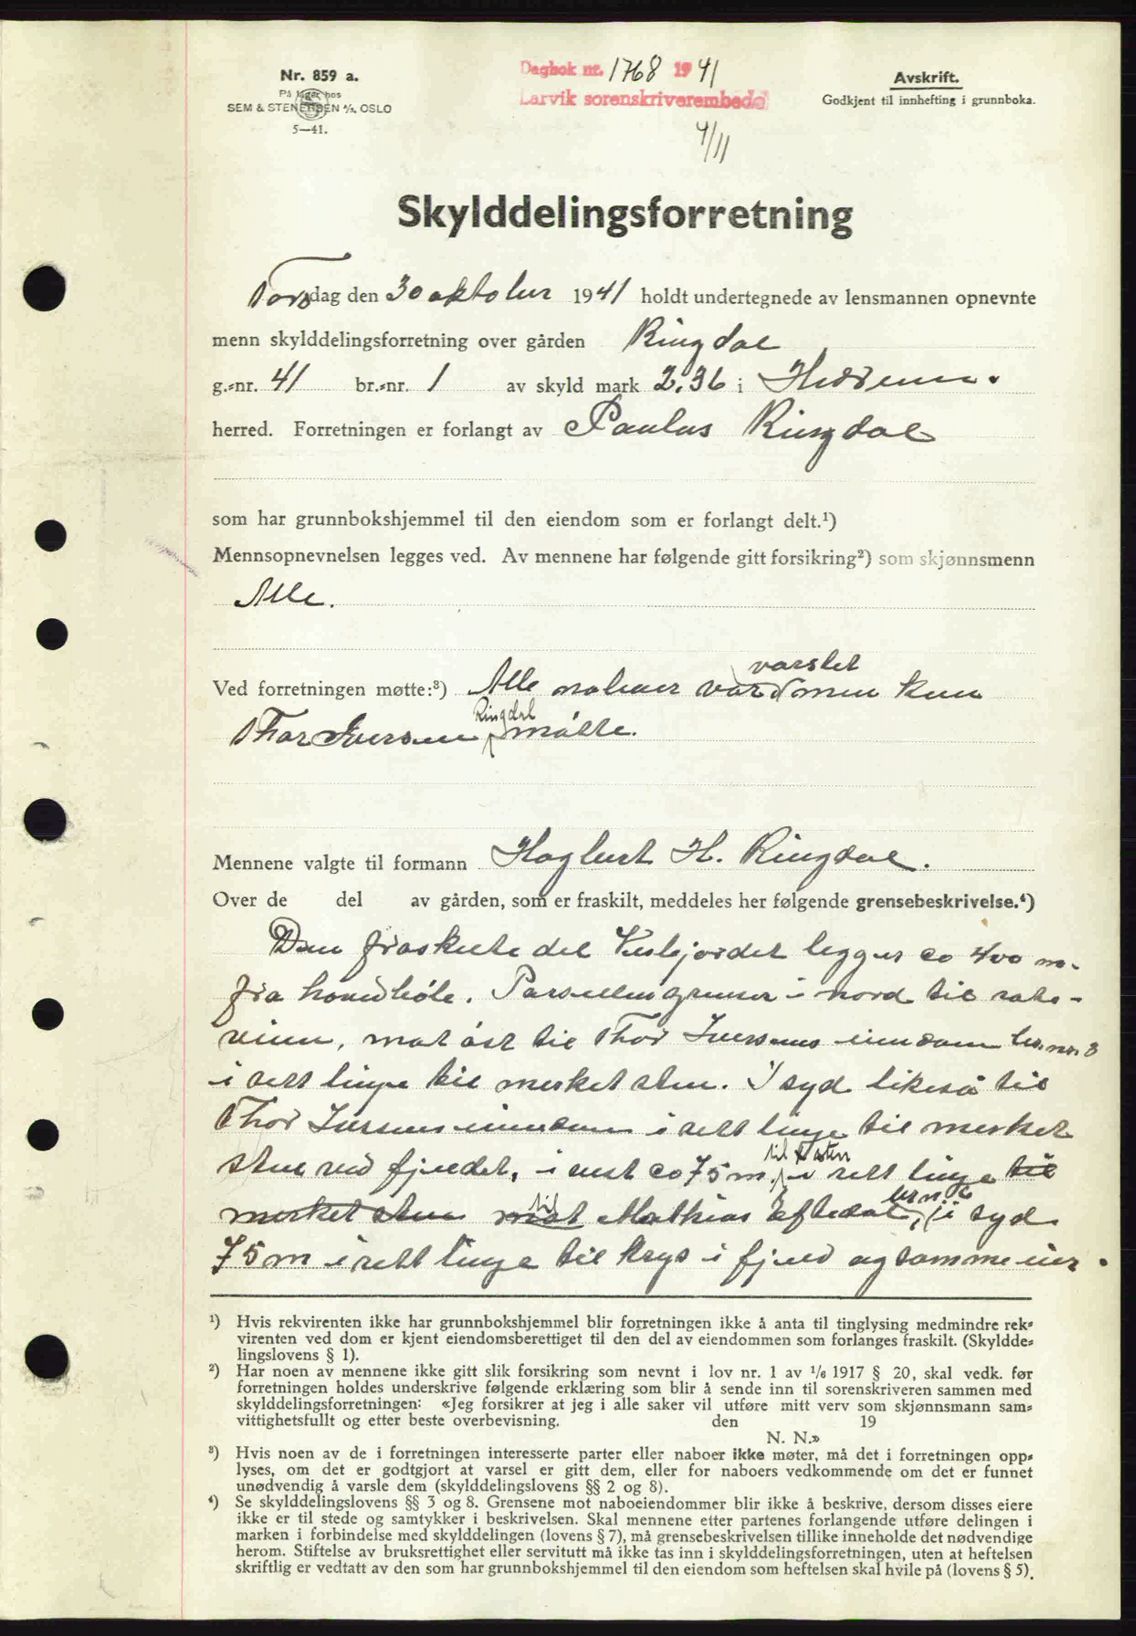 Nr. 859 a.
På lager hos
SEM & STENERSEN A/S. OSLO
5—41.
Dagbok nr. 1768 1941
Larvik sorenskriverembede
4/11
Avskrift.
Godkjent til innhefting i grunnboka.
Skylddelingsforretning
Torsdag den 30 oktober 1941 holdt undertegnede av lensmannen opnevnte
menn skylddelingsforretning over gården Ringdal
g.-nr. 41 br.-nr. 1 av skyld mark 2.36 i Hedrum.
herred. Forretningen er forlangt av Paulus Ringdal
som har grunnbokshjemmel til den eiendom som er forlangt delt.¹)
Mennsopnevnelsen legges ved. Av mennene har følgende gitt forsikring²) som skjønnsmenn
Alle.
varslet
Ved forretningen møtte:³) Alle naboer var men kun
Ringdal
Thor Iversen møtte.
Mennene valgte til formann Hagbart H. Ringdal.
Over de del av gården, som er fraskilt, meddeles her følgende grensebeskrivelse.⁴)
Den fraskilte del legger ca 400 m.
fra hovedbøle. Parsellen grenser i nord til
mot øst til Thor Iversens eiendom br.nr. 3
i rett linje til merket sten. I syd likeså til
Thor Iversens eiendom i rett linje til merket
til sten
sten ved fjellet, i vest ca 75 m. i rett linje til
til br n 2
merket sten mot Mathias, i syd
75 m i rett linje til krys i fjeld og samme eier.
¹) Hvis rekvirenten ikke har grunnbokshjemmel blir forretningen ikke å anta til tinglysing medmindre rek-
virenten ved dom er kjent eiendomsberettiget til den del av eiendommen som forlanges fraskilt. (Skyldde-
lingslovens § 1).
²) Har noen av mennene ikke gitt slik forsikring som nevnt i lov nr. 1 av 1/6 1917 § 20, skal vedk. før
forretningen holdes underskrive følgende erklæring som blir å sende inn til sorenskriveren sammen med
skylddelingsforretningen: «Jeg forsikrer at jeg i alle saker vil utføre mitt verv som skjønnsmann sam-
vittighetsfullt og etter beste overbevisning. den 19
N. N.»
³) Hvis noen av de i forretningen interesserte parter eller naboer ikke møter, må det i forretningen opp-
lyses, om det er godtgjort at varsel er gitt dem, eller for naboers vedkommende om det er funnet
unødvendig å varsle dem (skylddelingslovens §§ 2 og 8).
⁴) Se skylddelingslovens §§ 3 og 8. Grensene mot naboeiendommer blir ikke å beskrive, dersom disses eiere
ikke er til stede og samtykker i beskrivelsen. Skal mennene etter partenes forlangende utføre delingen i
marken i forbindelse med skylddelingen (lovens § 7), må grensebeskrivelsen tillike inneholde det nødvendige
herom. Stiftelse av bruksrettighet eller servitutt må ikke tas inn i skylddelingsforretningen, uten at heftelsen
skriftlig er vedtatt av den som har grunnbokshjemmel til den eiendom som heftelsen skal hvile på (lovens § 5).